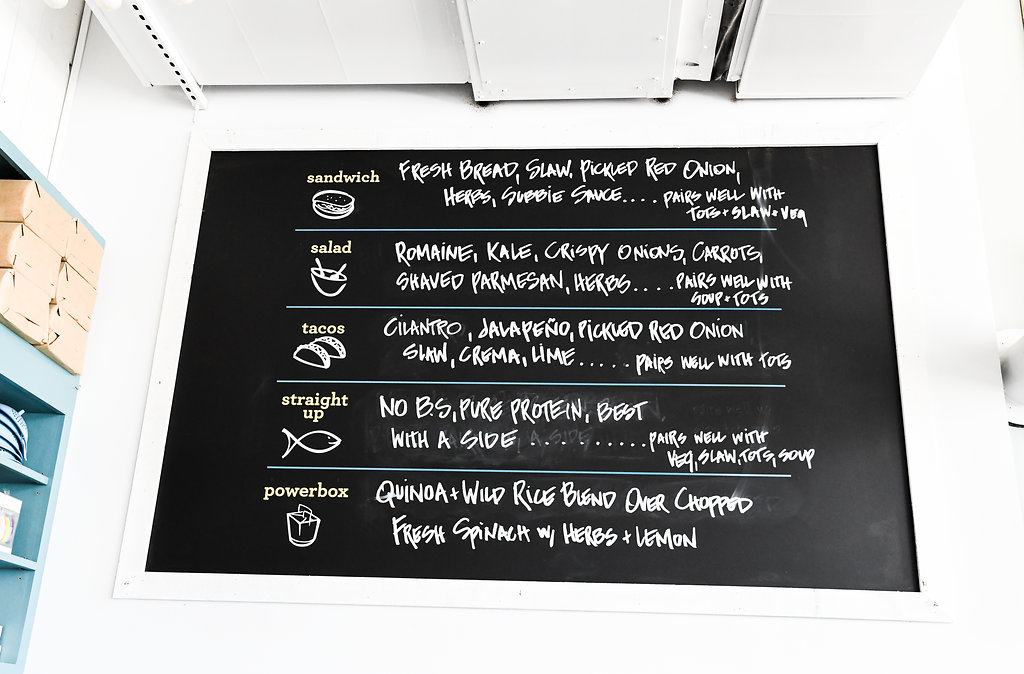 sandwich
FRESH BREAD, SLAW, PICKLED RED ONION,
HERBS, SUBBIE SAUCE.... PAIRS WELL WITH
TOTS + SLAW + VEG
salad
ROMAINE, KALE, CRISPY ONIONS, CARROTS,
SHAVED PARMESAN, HERBS.... PAIRS WELL WITH
SOUP + TOTS
tacos
CILANTRO, JALAPEÑO, PICKLED RED ONION
SLAW, CREMA, LIME..... PAIRS WELL WITH TOTS
straight
up
NO B.S, PURE PROTEIN, BEST
WITH A SIDE .......... PAIRS WELL WITH
VEG, SLAW, TOTS, SOUP
powerbox
QUINOA + WILD RICE BLEND OVER CHOPPED
FRESH SPINACH W/ HERBS + LEMON